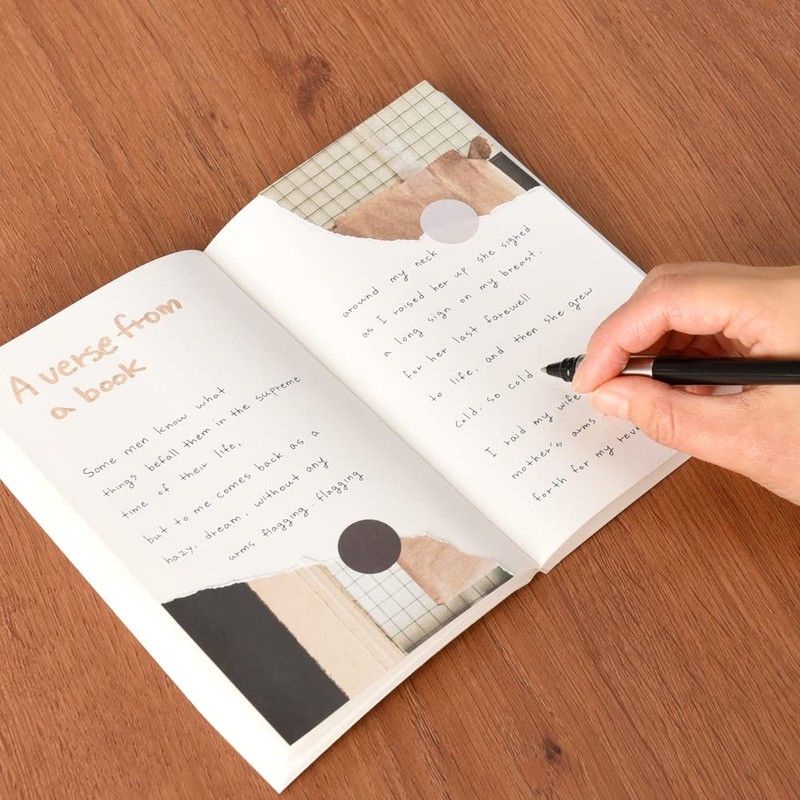 A verse from
a book
Some men know what
things befall them in the supreme
time of their life,
but to me comes back as a
hazy, dream, without any
arms flagging, flagging
around my neck
as I raised her up she sighed
a long sign on my breast.
for her last farewell
to life, and then she grew
cold, so cold
I raid my wife
mother's arms
forth for my